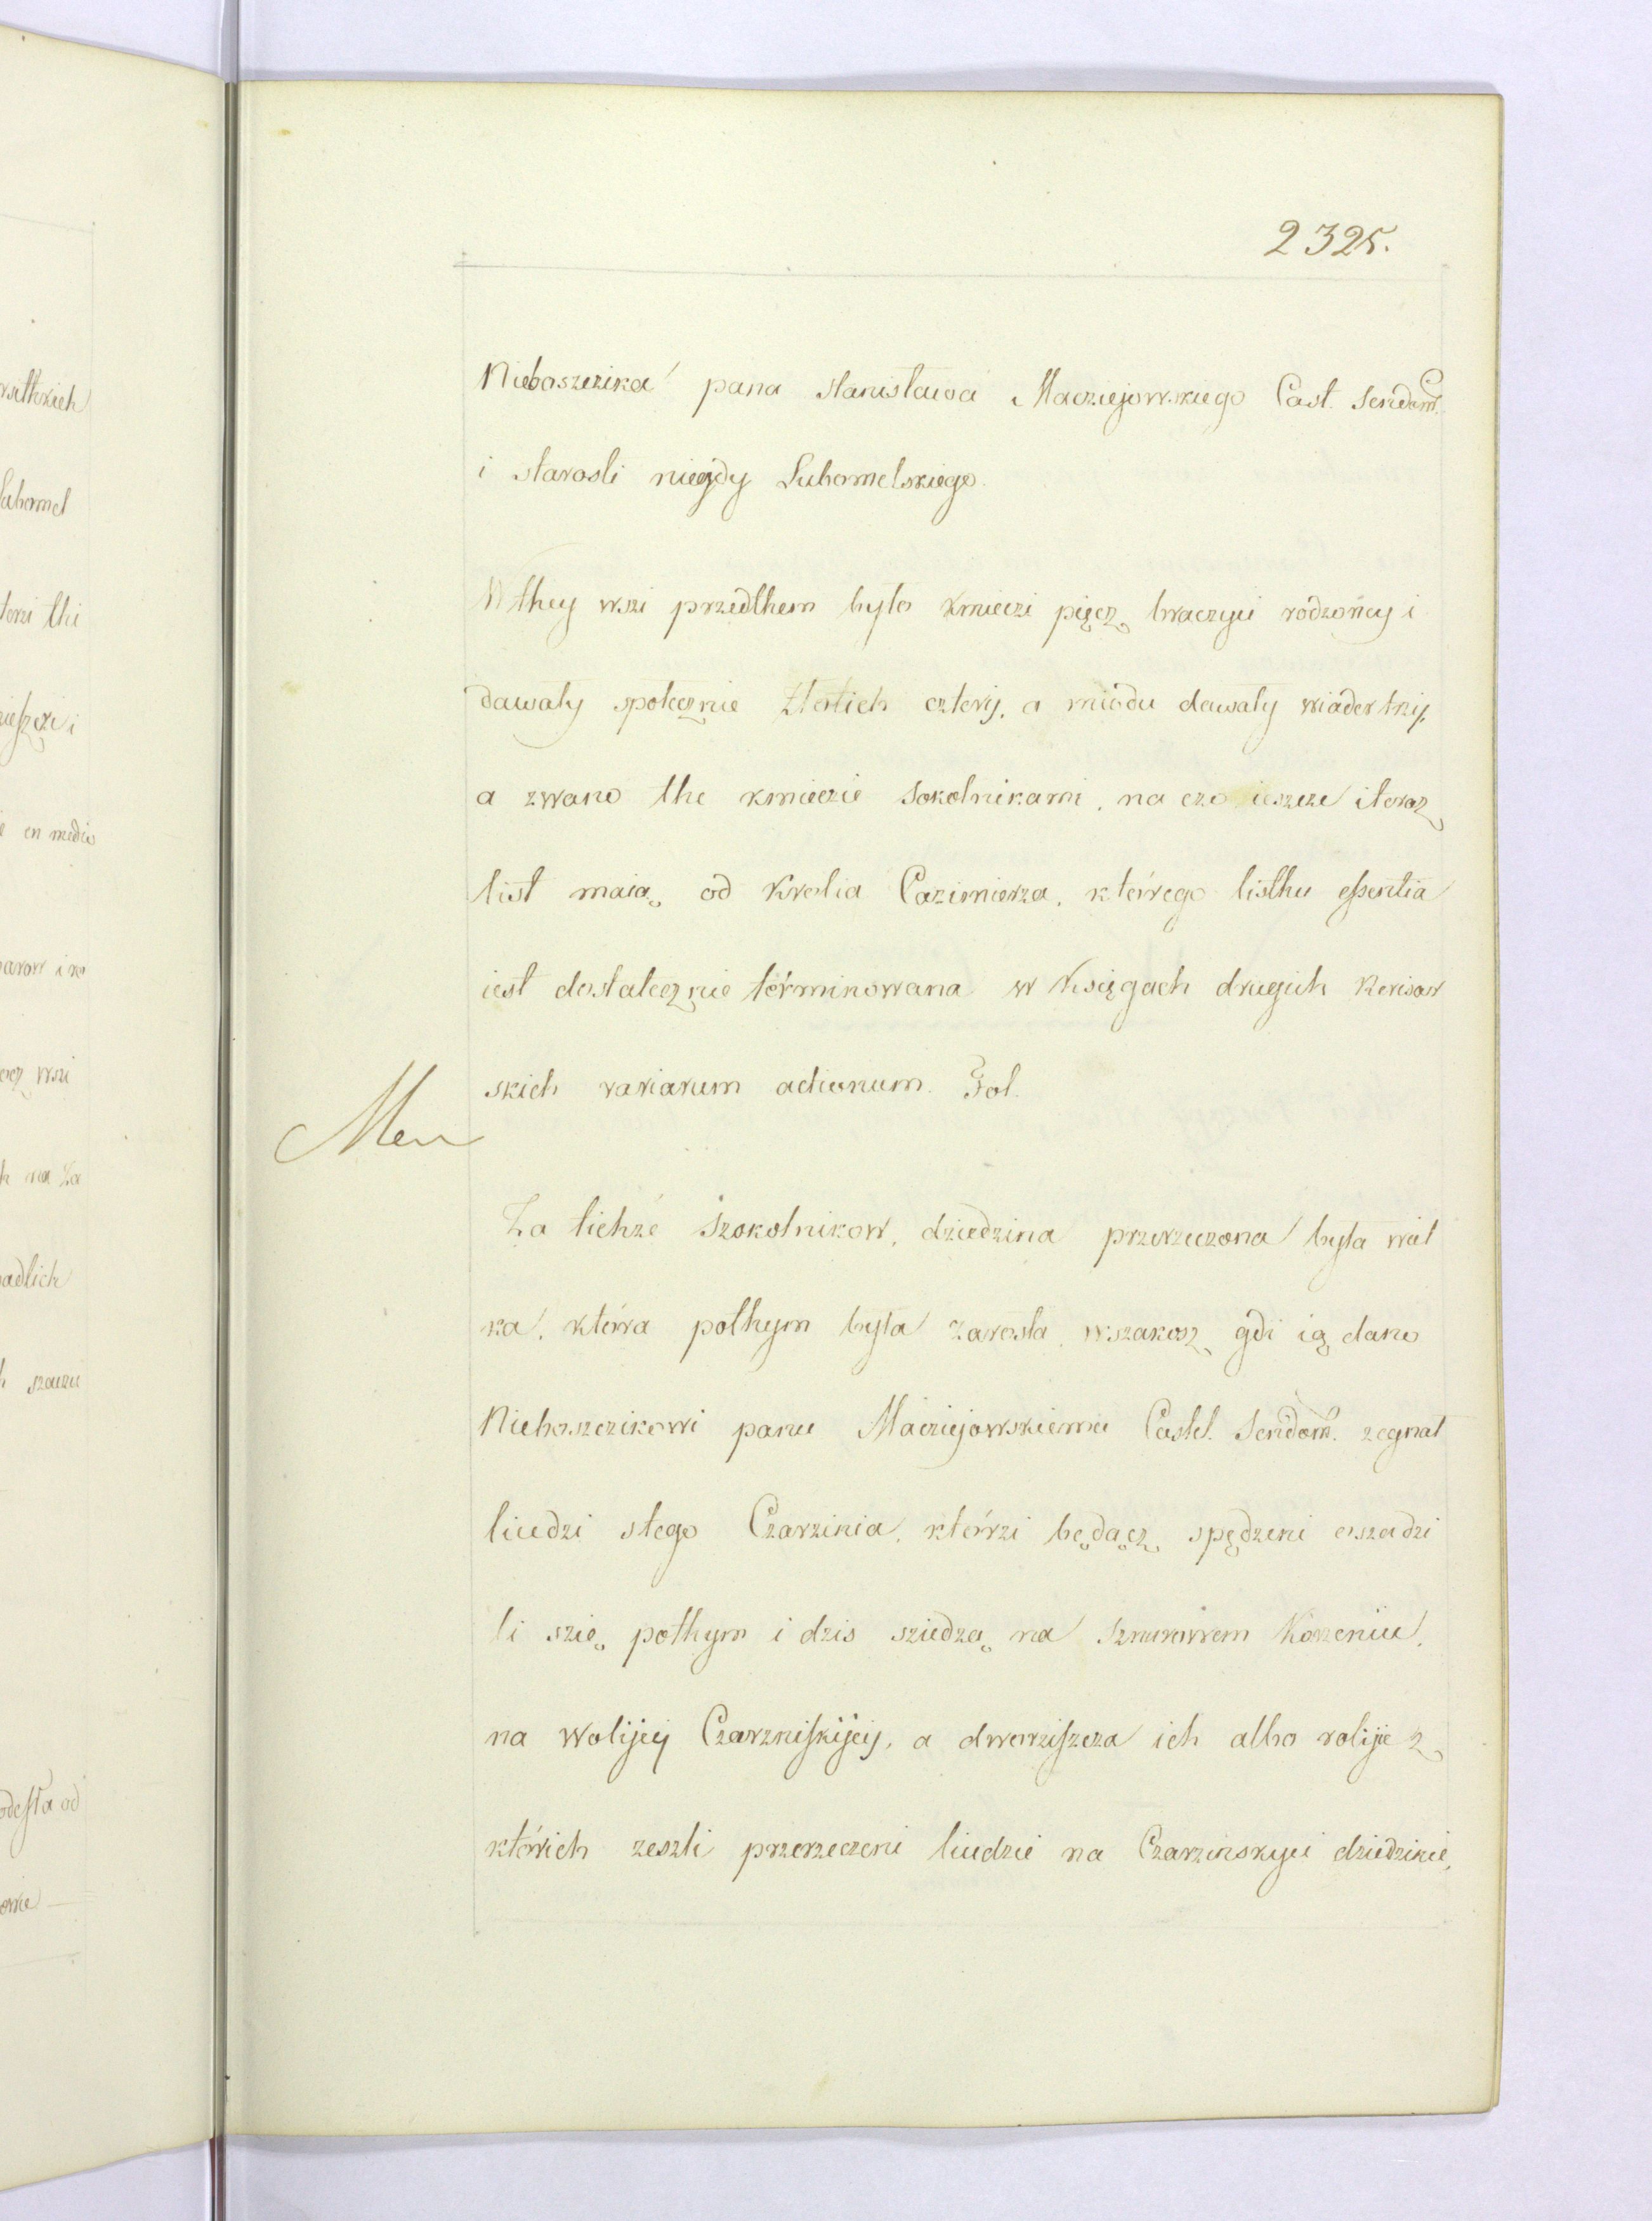 2325.
Nieboszczika pana Stanisława Macziejowskiego Cast. Sendom.
i starosti niegdy Lubomelskiego.
W they wszi przedthem było kmieczi pięcz braczyei rodzoney i
dawały społecznie złotich cztery, a miodu dawały wiader trzy,
a zwano the kmieczie Sokolnikami, na czo ieszcze i teraz
list maią od Krolia Cazimierza, którego listhu essentia
iest dostatecznie términowana w Księgach drugich Rewisor
skich variarum actionum. Fol.
Za tichże Szokolnikow, dziedzina przerzeczona była wiel
ka, która pothym była zarosła, wszakosz gdi ią dano
Nieboszczikowi panu Macziejowskiemu Castel. Sendom. zegnał
liudzi s tego Czarzinia, którzi będącz spędzeni oszadzi
li szię pothym i dzis sziedzą na Sznurowem Korzeniu,
na Wolijey Czarzniskijey, a dworziszcza ich albo rolije z
których zeszli przerzeczeni liudzie na Czarzinskyei dziedzinie,
wsithkich
Lubomel
thi
i
en medio
wszi
na Za
adlich
od